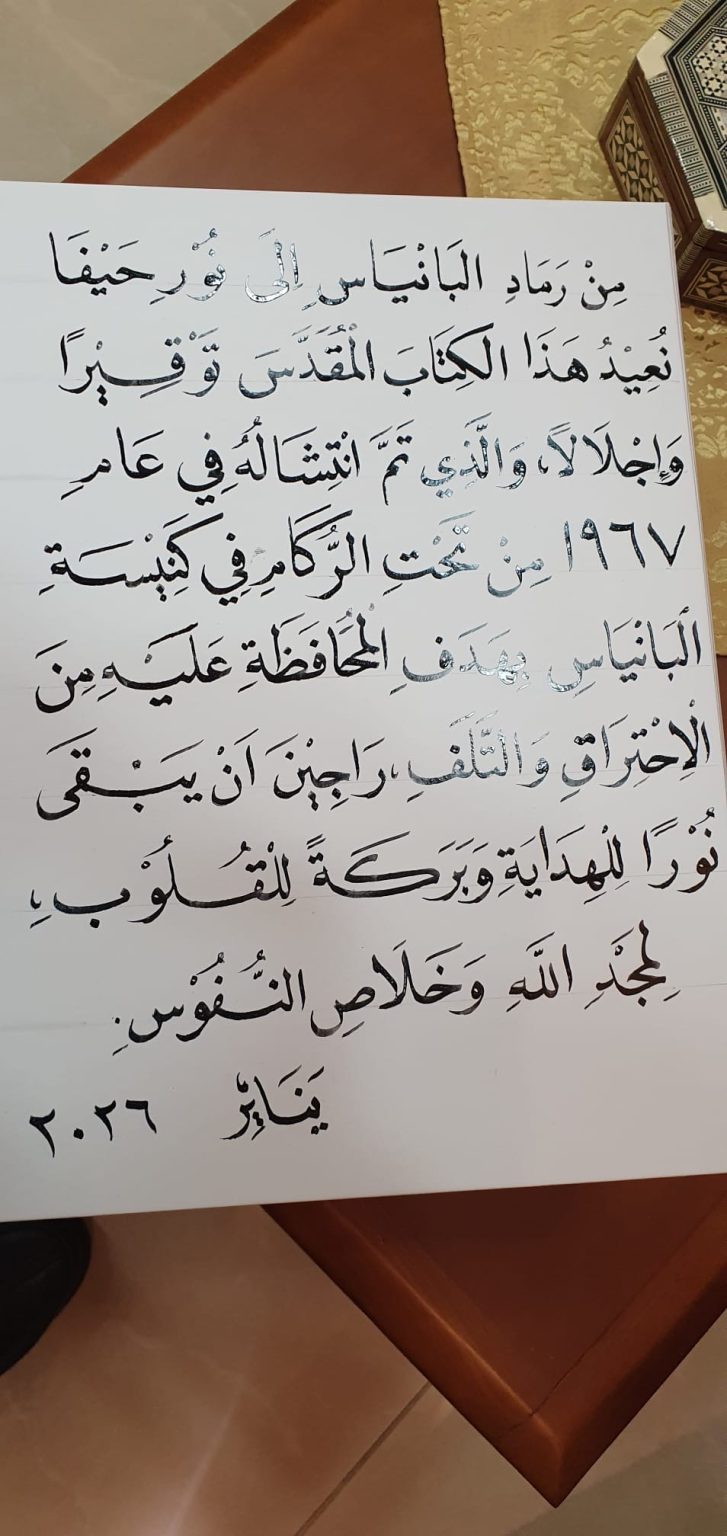 مِنْ رَمَادِ البَانْيَاسِ اِلَى نُوْرِ حَيْفَا
نُعِيْدُ هَذَا الكِتَابَ الْمُقَدَّسَ تَوْقِيْرًا
وَإِجْلَالًا، وَالَّذِي تَمَّ انْتِشَالُهُ فِي عَامِ
١٩٦٧ مِنْ تَحْتِ الرُّكَامِ فِي كَنِيْسَةِ
الْبَانْيَاسِ بِهَدَفِ الْمُحَافَظَةِ عَلَيْهِ مِنَ
الْاِحْتِرَاقِ وَالتَّلَفِ، رَاجِيْنَ اَنْ يَبْقَى
نُوْرًا لِلْهِدَايَةِ وَبَرَكَةً لِلْقُلُوْبِ،
لِمَجْدِ اللَّهِ وَخَلَاصِ النُّفُوْسِ.
يَنَايِرْ ٢٠٢٦